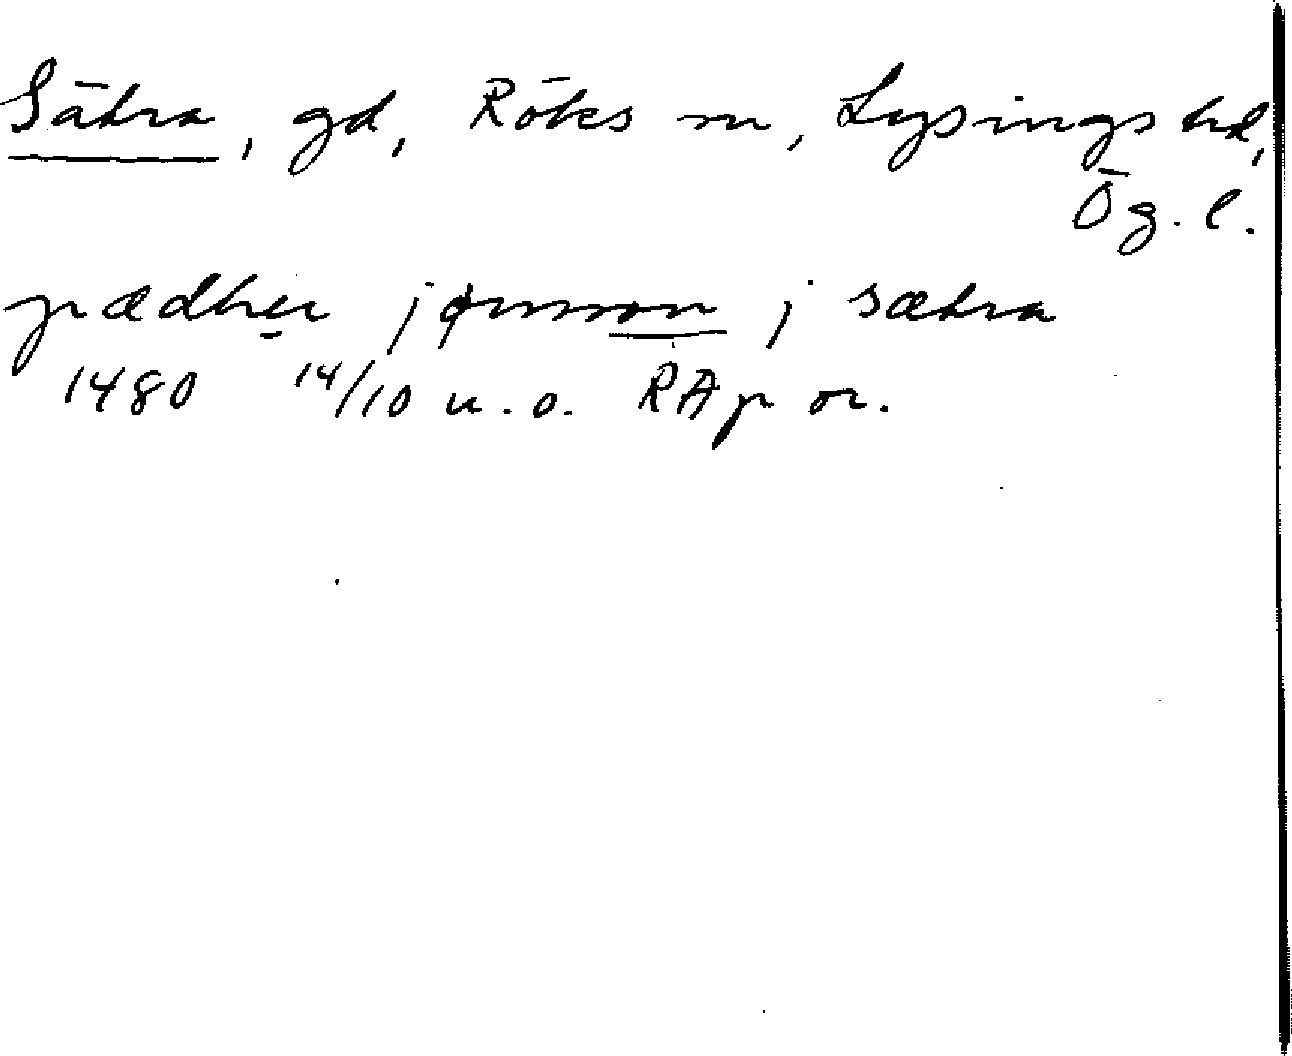 Sätra, gd, Röks sn, Lysings hd,
Ög. l.
pædher jønsson j sætra
1480 14/10 u.o. RAp or.